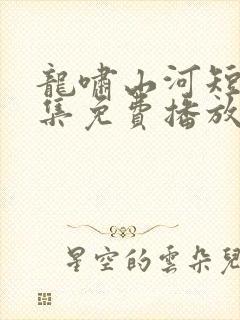 龍嘯山河短
集免費播放
星空的雲朵兒